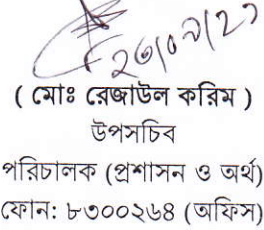 ( মোঃ রেজাউল করিম )
উপসচিব
পরিচালক (প্রশাসন ও অর্থ)
ফোন: ৮৩০০২৬৪ (অফিস)